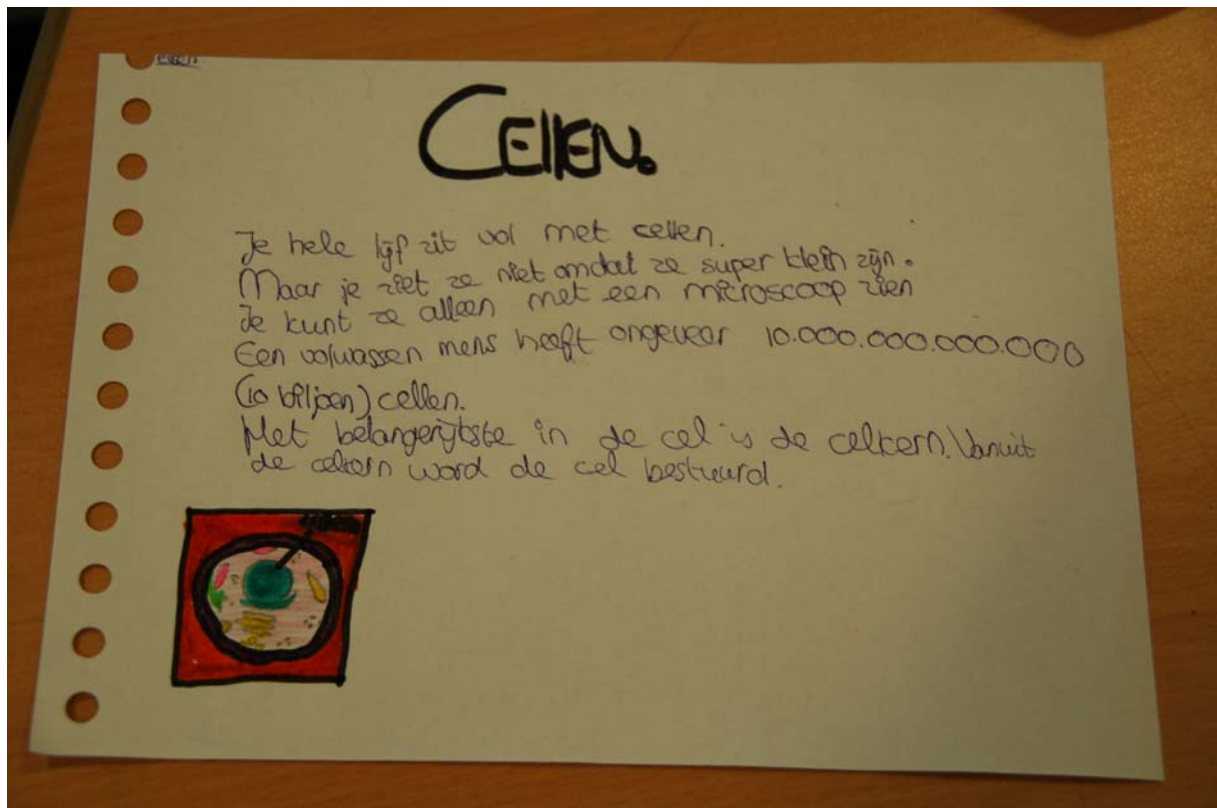 CEllEN.
Je hele lijf zit vol met cellen.
Maar je ziet ze niet omdat ze super klein zijn.
Je kunt ze alleen met een microscoop zien
Een volwassen mens heeft ongeveer 10.000.000.000.000
(10 biljoen) cellen.
Het belangerijkste in de cel is de celkern. Vanuit
de celkern word de cel bestuurd.